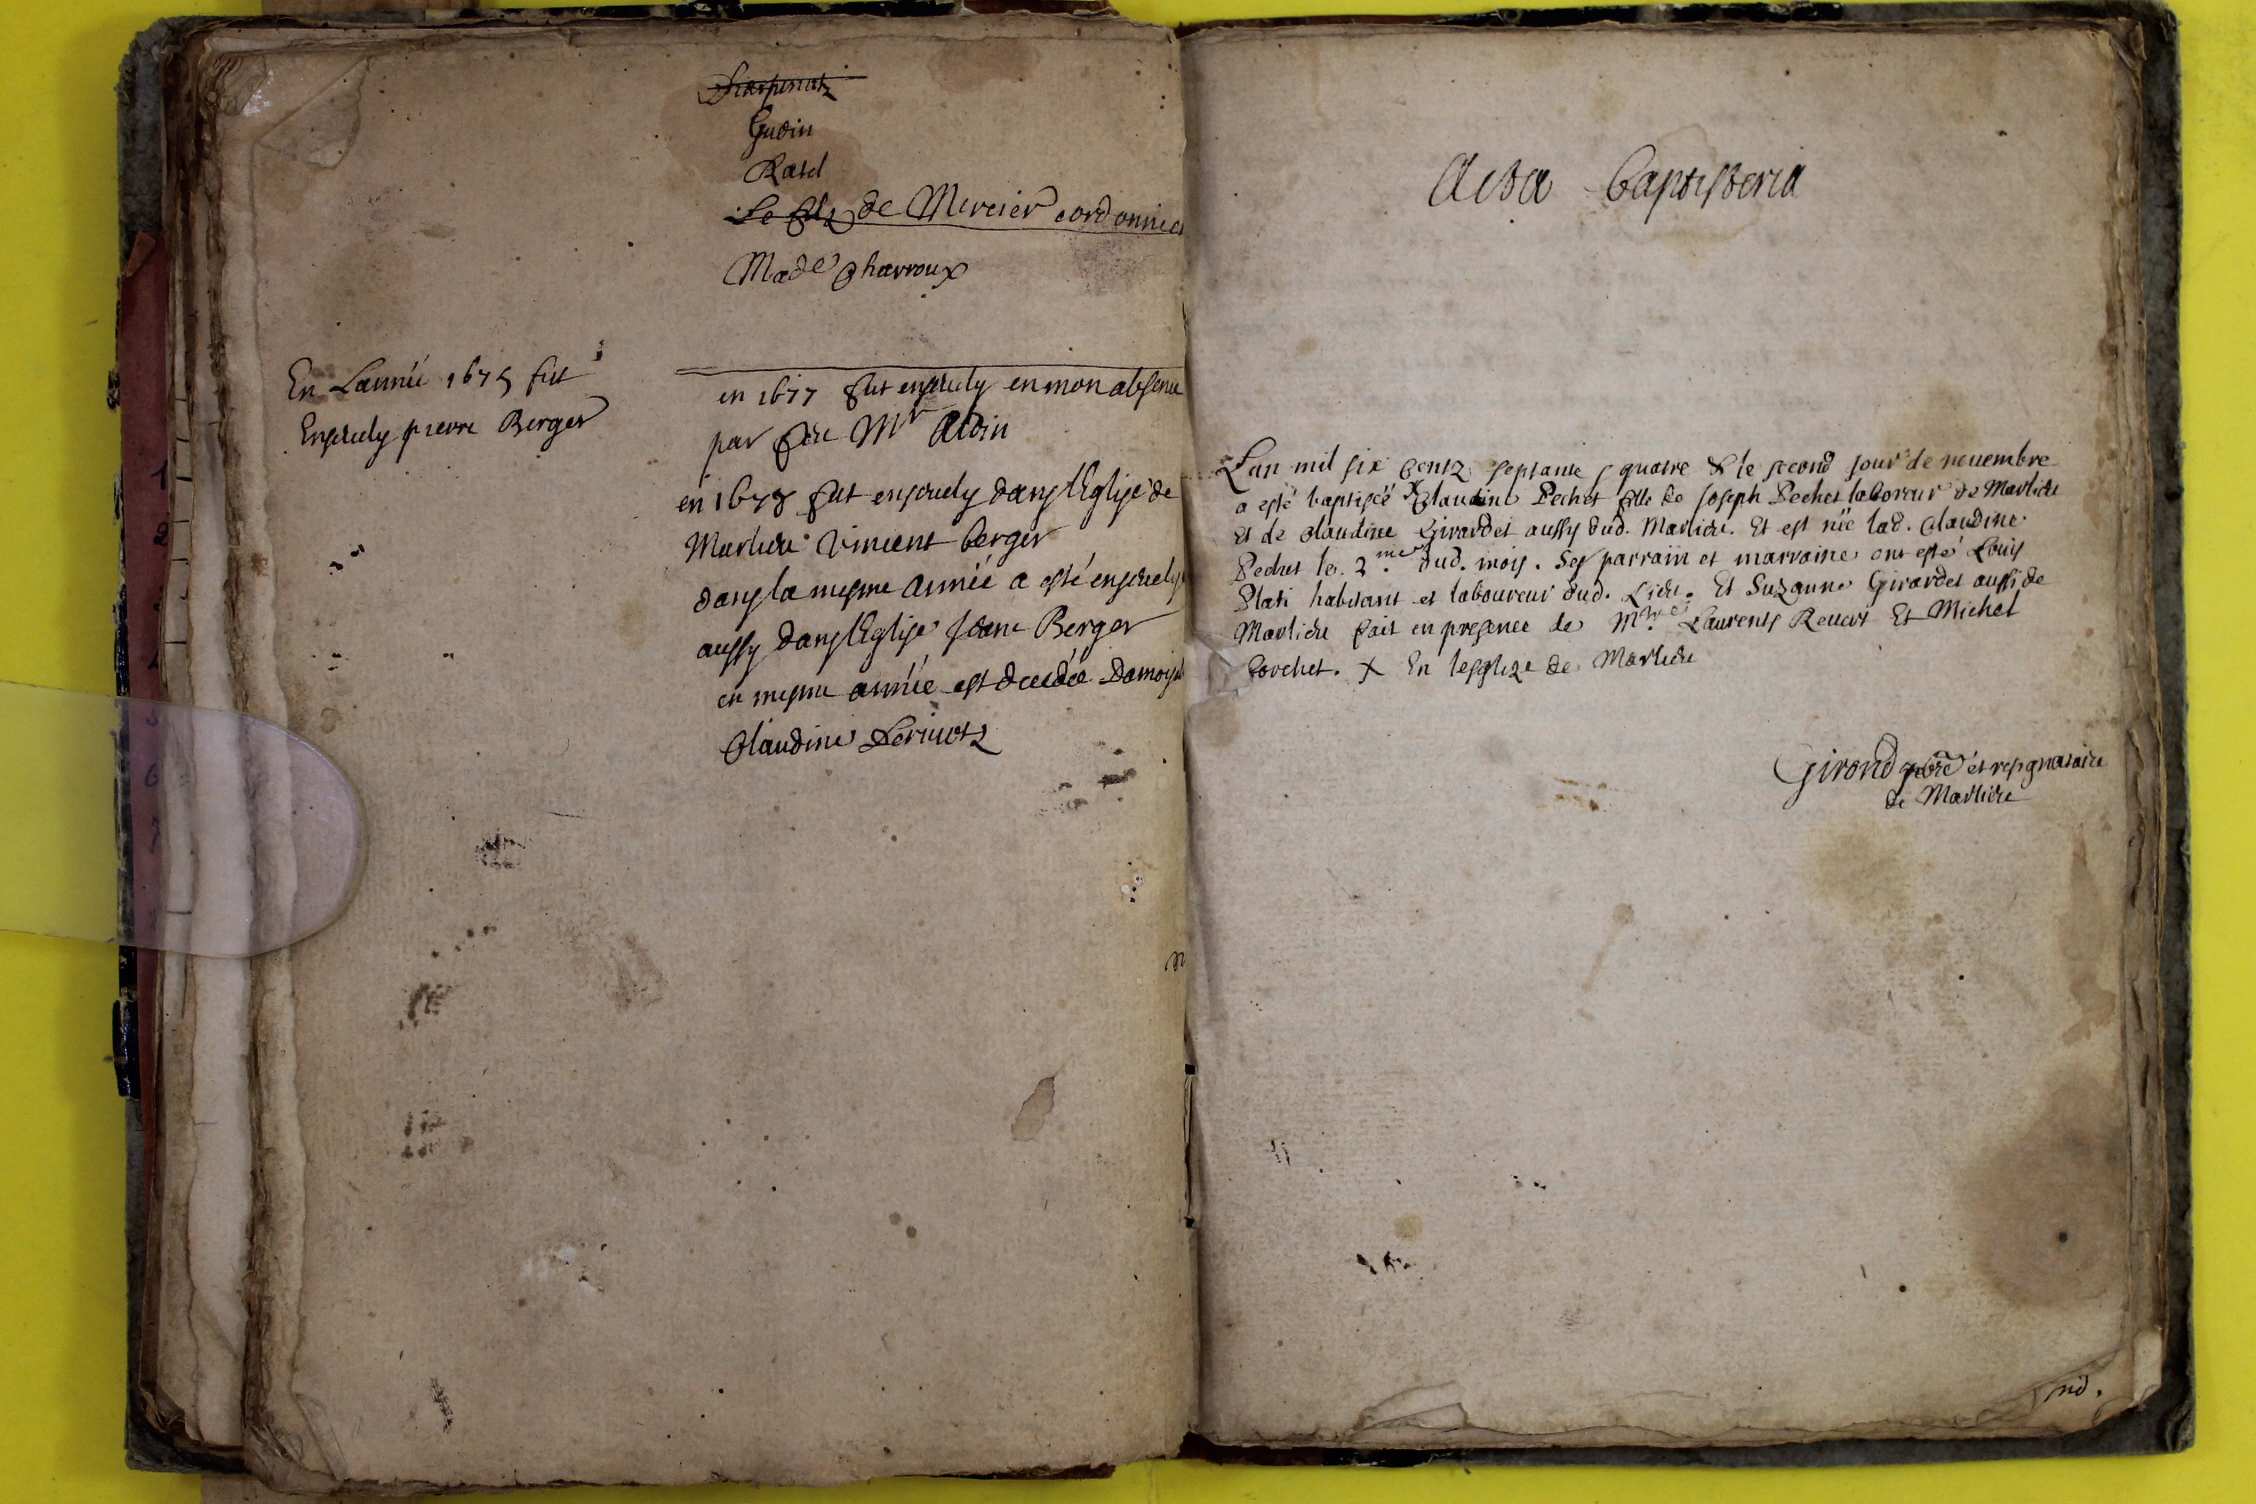 Gudin
Ratel
Le filz de Mercier cordonnie
Made Charroux
En Lannée 1675 fut
Ensevely pierre Berger
en 1677 fut ensevely en mon absence
par feu Mr Aldin
en 1678 fut ensevely dans l'Eglise de
Marlieu Vincent berger
dans la mesme année a esté ensevely
aussy dans l'Eglise Jeane Berger
en mesme année est decedée Damois
Claudine
Acta baptisteria
L'an mil six centz septante quatre & le second jour de nouembre
a esté baptiséé Claudine Pechet fille de Joseph Pechet laboreur de Marlieu
et de Claudine Girardet aussy dud. Marlieu. Et est née lad. Claudine
Pechet le 2.me dud. mois. Ses parrain et marraine ont esté Louis
Plati habitant et laboureur dud. Lieu. Et Suzanne Girardet aussi de
Marlieu fait en presence de Laurents Et Michel
bovchet. X En lesglize de Marlieu
Girond pbre et resignataire
de Marlieu
nd.